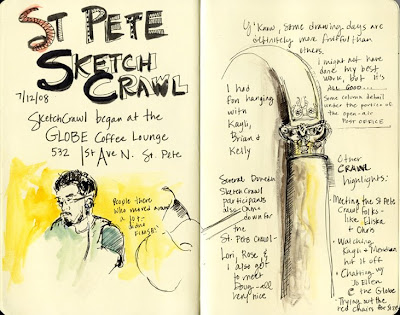 ST PETE
SKETCH
CRAWL
7/12/08
SketchCrawl began at the
GLOBE Coffee Lounge
532 1st Ave N. St. Pete
People there
who moved around
a lot -
Fingers!
Y'Know, some drawing days are
definitely more fruitful than
others.
I might not have
done my best
work, but it's
ALL GOOD...
Some column detail
under the portico of
the open-air
POST OFFICE
I had
fun hanging
with
Kayli,
Brian &
Kelly
Several
SketchCrawl
participants
also came
down for
the
St. Pete Crawl-
Lori, Rose, &
I also got
to meet
Doug-all
very nice
Other
CRAWL
highlights:
• Meeting the St Pete
Crawl folks-
like
+ Chris
• Watching
Kayli +
hit it off
• Chatting w/
Jo Ellen
@ the Globe
• Trying out the
red chairs for size